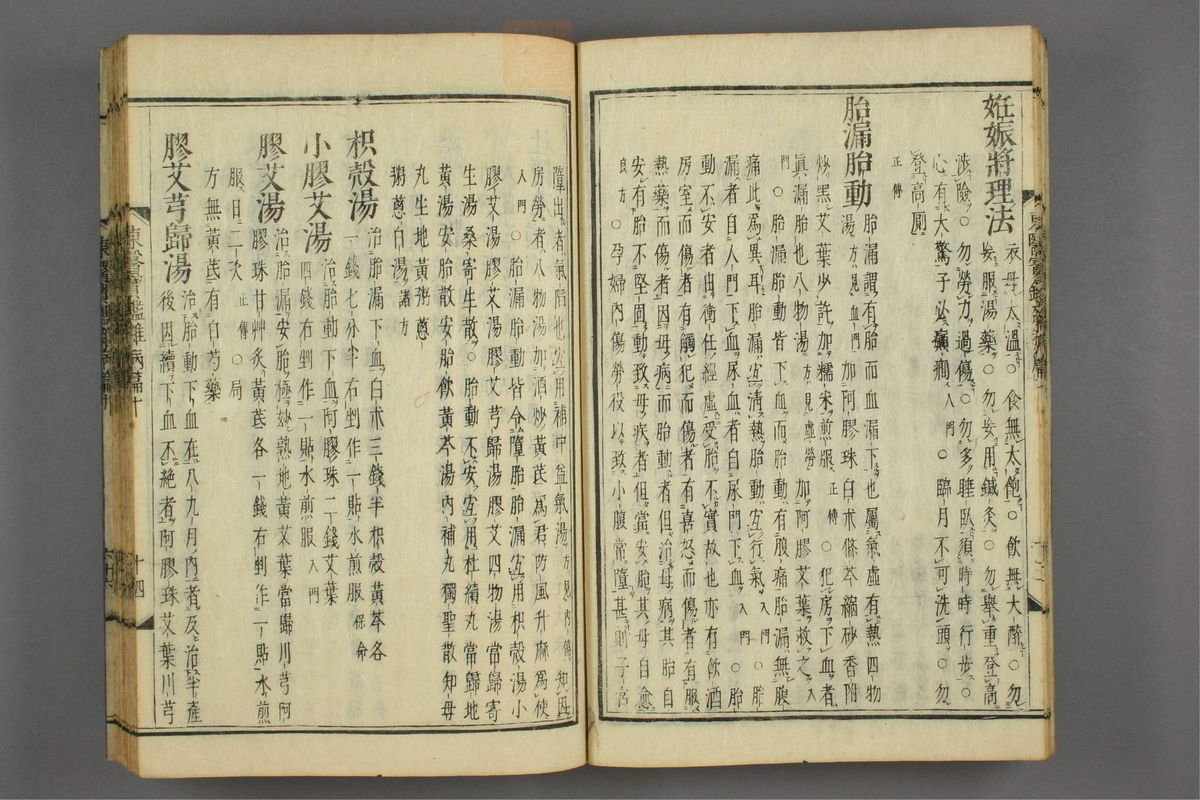 妊娠將理法
衣毋太溫○食無太飽○飮無大醉○勿
妄服湯藥○勿妄用鍼灸○勿擧重登高
涉險○勿勞力過傷○勿多睡臥須時時行步○
心有大驚子必癲癎入門○臨月不可洗頭○勿
登高圊
正傳
胎漏胎動
胎漏謂有胎而血漏下也屬氣虛有熱四物
湯方見血門加阿膠珠白朮條芩縮砂香附
炒黑艾葉少許加糯米煎服正傳○犯房下血者
眞漏胎也八物湯方見虛勞加阿膠艾葉救之入
門○胎漏胎動皆下血而胎動有腹痛胎漏無腹
痛此爲異耳胎漏宜淸熱胎動宜行氣入門○胎
漏者自人門下血尿血者自尿門下血入門○胎
動不安者出衝任經虛受胎不實故也亦有飮酒
房室而傷者有觸犯而傷者有喜怒而傷者有服
熱藥而傷者因母病而胎動者但治母病其胎自
安有胎不堅固動致母病者但當安胎其母自愈
良方○孕婦內傷勞役以致小腹常墮甚則子宮
墮出者氣陷也宜用補中益氣湯方見內傷知因
房勞者八物湯加酒炒黃芪爲君防風升麻爲使
入門○胎漏胎動皆令墮胎胎漏宜用枳殼湯小
膠艾湯膠艾湯膠艾芎歸湯膠艾四物湯當歸寄
生湯桑寄生散○胎動不安宜用杜續丸當歸地
黃湯安胎散安胎飮黃芩湯內補丸獨聖散知母
丸生地黃粥葱
粥葱白湯諸方
枳殼湯
治胎漏下血白朮三錢半枳殼黃芩各
一錢七分半右剉作一貼水煎服保命
小膠艾湯
治胎動下血阿膠珠二錢艾葉
四錢右剉作一貼水煎服入門
膠艾湯
治胎漏安胎極妙熟地黃艾葉當歸川芎阿
膠珠甘艸炙黃芪各一錢右剉作一貼水煎
服日二次正傳○局
方無黃芪有白芍藥
膠艾芎歸湯
治胎動下血在八九月內者及治半産
後因續下血不絶者阿膠珠艾葉川芎
東醫寶鑑雜病篇十
十四